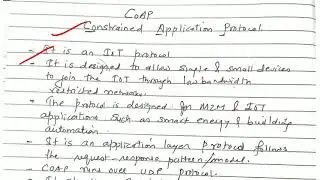 COAP
Constrained Application Protocol
- It is an IoT protocol
- It is designed to allow simple & small devices
to join the IOT through low bandwidth
restricted network.
- The protocol is designed for M2M & IOT
applications such as smart energy & building
automation.
- It is an application layer protocol follows
the request-response pattern/model.
- COAP runs over UDP protocol.